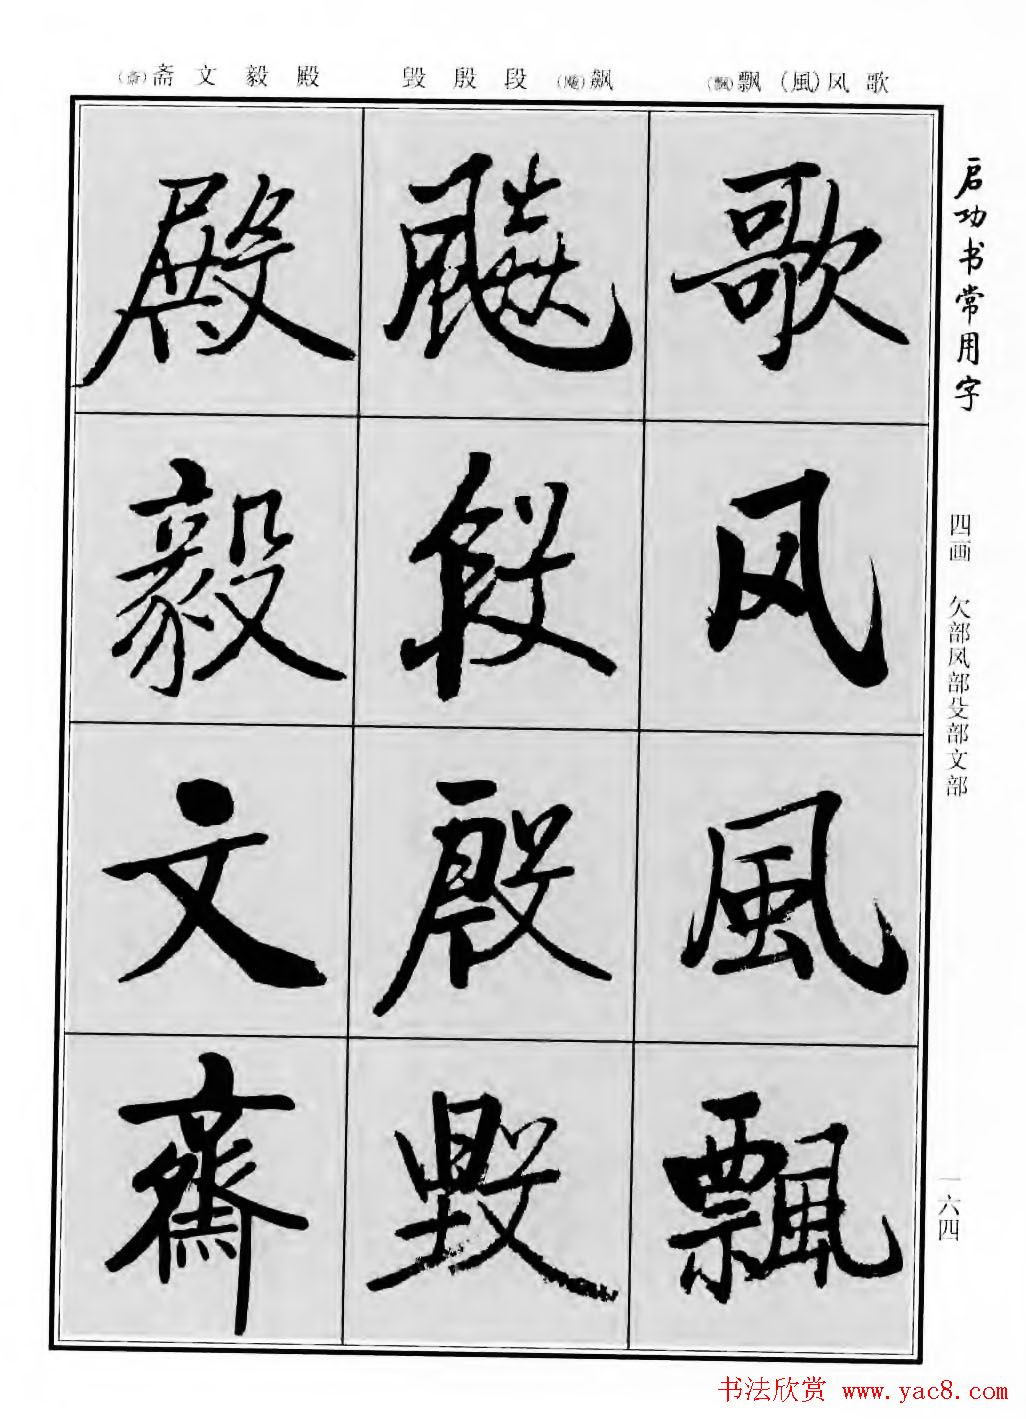 歌风(風)飘(飄)
飙(飈)段殷毁
殿毅文斋(齋)
启功书常用字
四画 欠部风部殳部文部
一六四
歌风風飄
飈段殷毀
殿毅文齋
书法欣赏 www.yac8.com